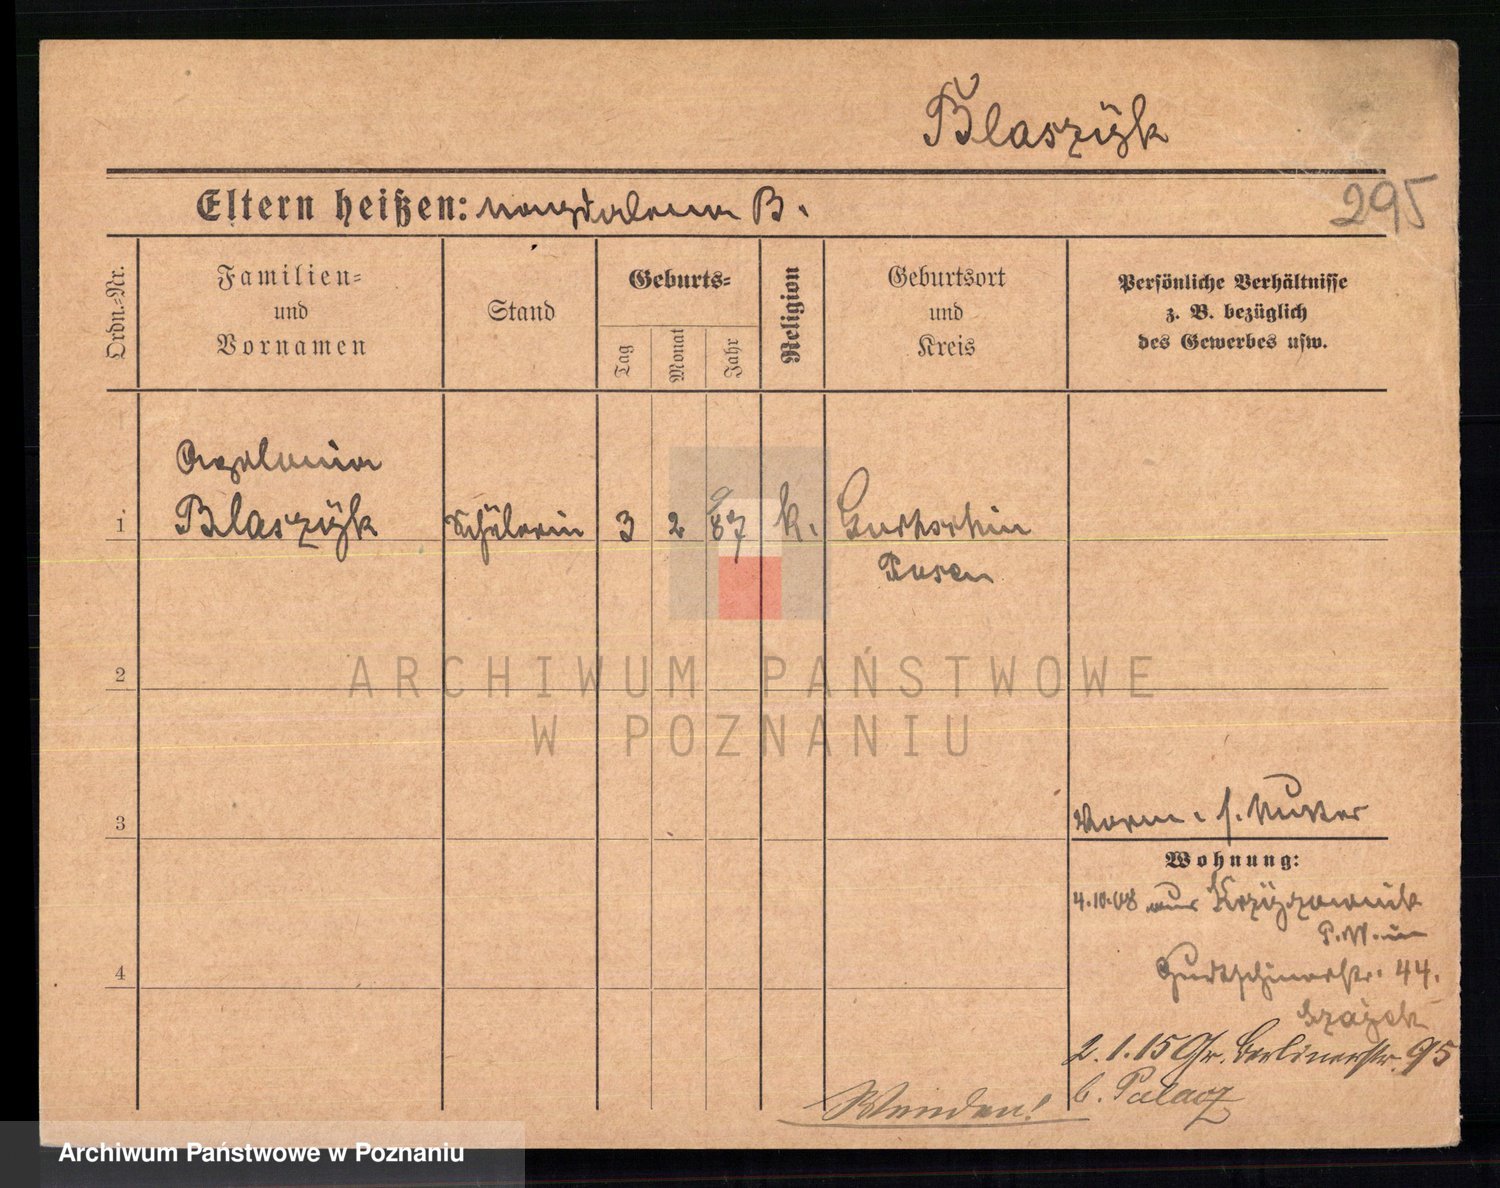 Blaszÿk
295
Eltern heißen: Magdalena B.
Ordn.-Nr.
Familien-
und
Vornamen
Stand
Geburts-
Tag
Monat
Jahr
Religion
Geburtsort
und
Kreis
Persönliche Verhältnisse
z. B. bezüglich
des Gewerbes usw.
Apolonia
1 Blaszÿk Schülerin 3 2 87 k. Gurtschin
Posen
2
3
Vorm. s. Mutter
Wohnung:
4.10.08 aus
P. W. in
4
Gurtschinerstr. 44.
2.1.15 Gr. Berlinerstr. 95
b. Palacz
Wenden!
ARCHIWUM PAŃSTWOWE
W POZNANIU
Archiwum Państwowe w Poznaniu